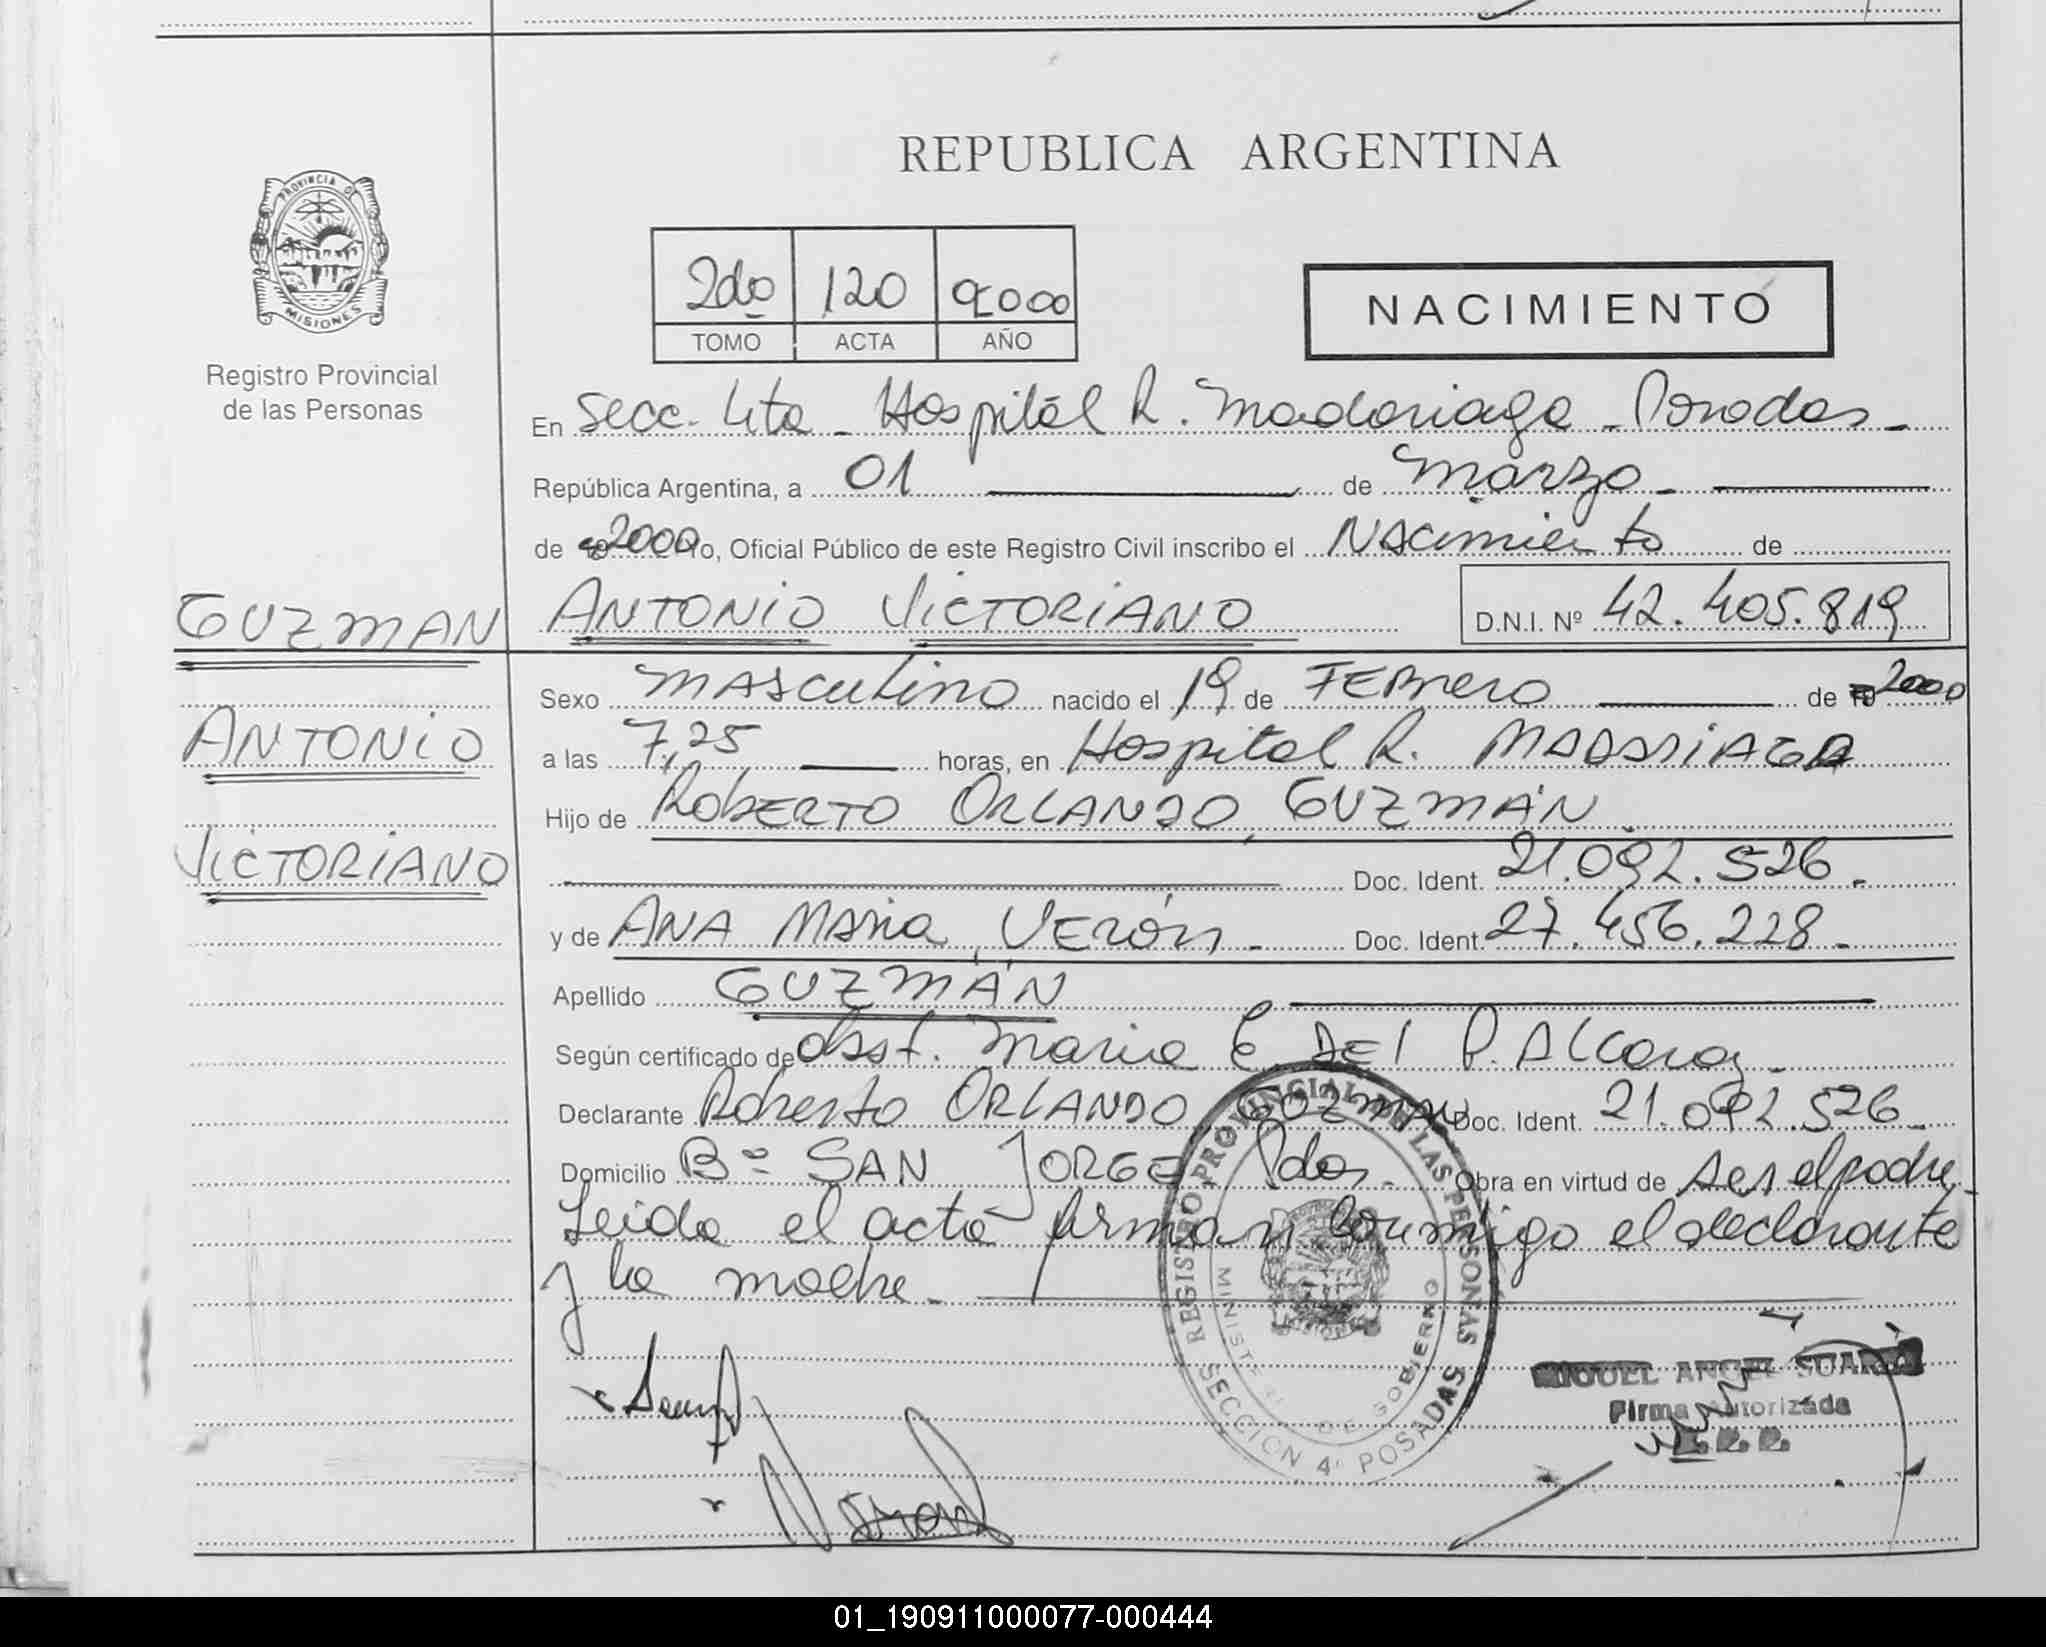 REPUBLICA ARGENTINA
PROVINCIA DE
MISIONES
Registro Provincial
de las Personas
2do 120 2000
TOMO ACTA AÑO
NACIMIENTO
En Secc. 4ta - Hospital R. Madariaga - Posadas -
República Argentina, a 01 de Marzo -
de 2000 yo, Oficial Público de este Registro Civil inscribo el Nacimiento de
GUZMAN
ANTONIO VICTORIANO D.N.I. Nº 42.405.819
ANTONIO
VICTORIANO
Sexo Masculino nacido el 19 de Febrero de 2000
a las 7,25 horas, en Hospital R. MADARIAGA
Hijo de ROBERTO ORLANDO, GUZMÁN
Doc. Ident. 21.092.526 -
y de ANA MARIA, VERÓN - Doc. Ident. 27.456.228 -
Apellido GUZMÁN
Según certificado de Obst. Maria E. DEl P. Alcaraz
Declarante Roberto ORLANDO GUZMAN Doc. Ident. 21.092.526 -
Domicilio Bº SAN JORGE Pdas. Obra en virtud de ser el padre -
Leida el acta firman conmigo el declarante
y la madre -
REGISTRO PROVINCIAL DE LAS PERSONAS
MINISTERIO DE GOBIERNO
SECCION 4ª POSADAS
MIGUEL ANGEL SUAREZ
Firma Autorizada
01_190911000077-000444